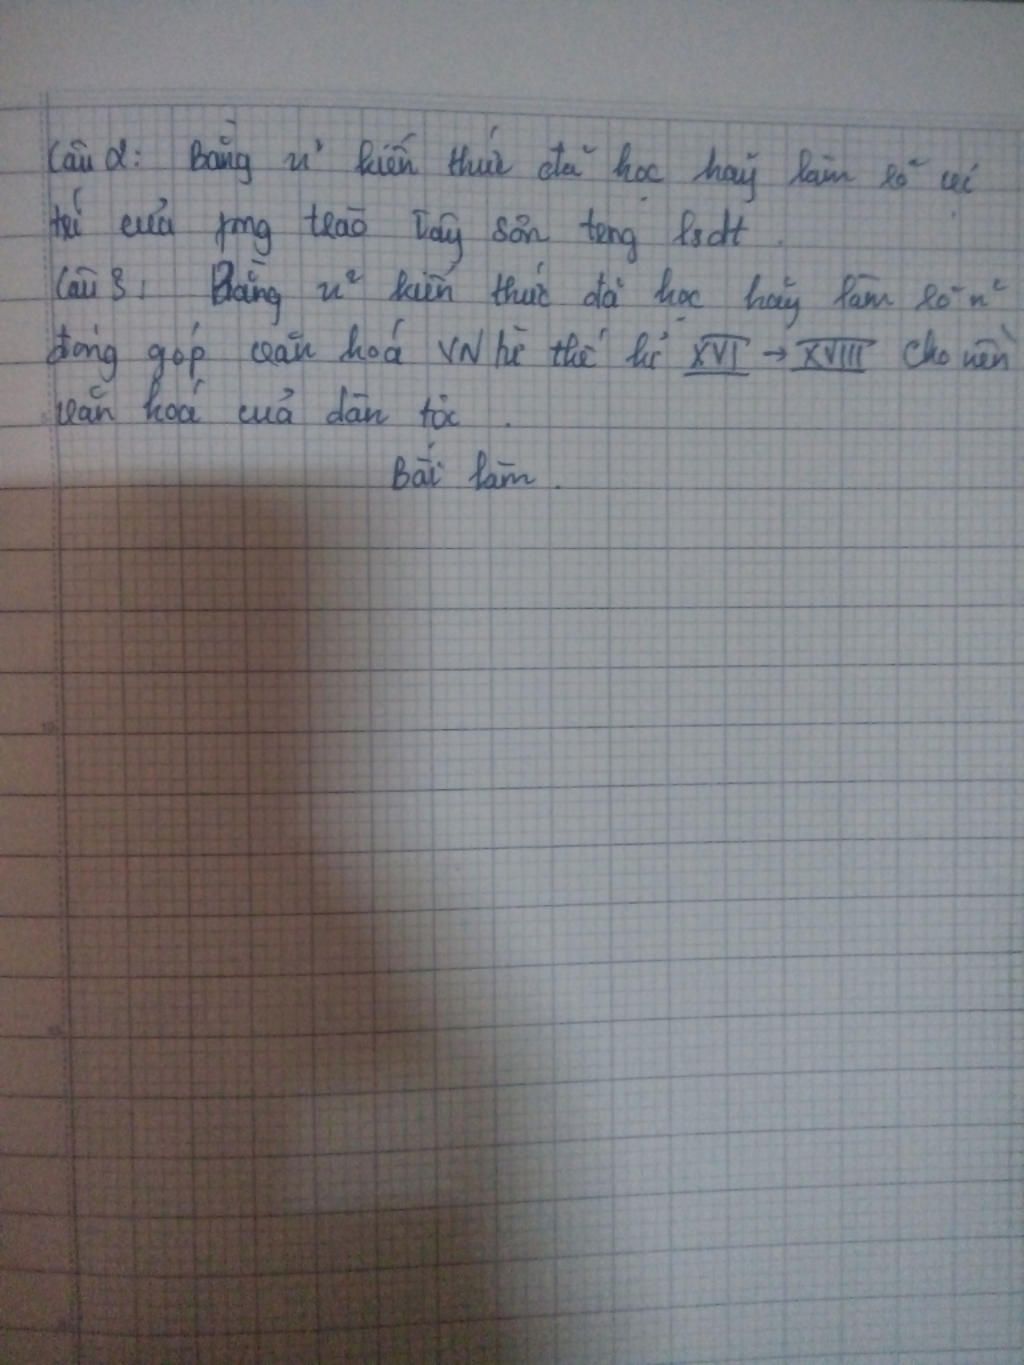 Câu 2: Bằng n² kiến thức đã học hãy làm rõ vị
trí của pong trào Tây Sơn trong lsdt.
Câu 3: Bằng n² kiến thức đã học hãy làm rõ n²
đóng góp văn hoá VN từ thế kỉ XVI → XVIII cho nền
văn hoá của dân tộc.
Bài làm.